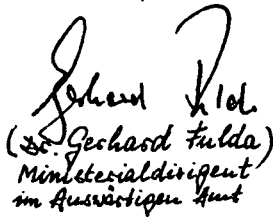 Gerhard Fulda
(Dr. Gerhard Fulda)
Ministerialdirigent
im Auswärtigen Amt